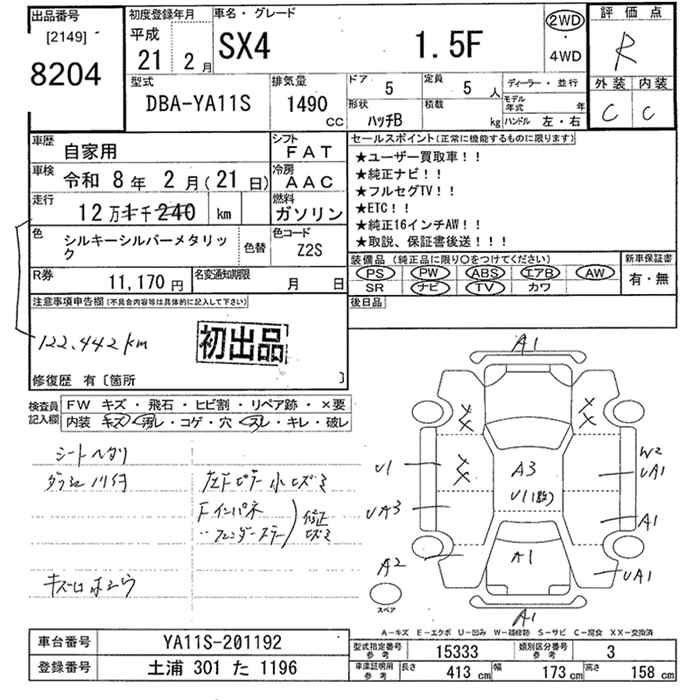 出品番号
[2149]
8204
初度登録年月
平成
21 2月
車名・グレード
SX4 1.5F
2WD
・
4WD
評価点
R
外装 内装
C C
型式
DBA-YA11S
排気量
1490
CC
ドア 5
定員 5人
形状 ハッチB
積載 kg
ディーラー・並行
モデル年式 年
ハンドル 左・右
車歴 自家用
シフト FAT
車検 令和 8年 2月(21日)
冷房 AAC
走行 12万 km
燃料 ガソリン
色 シルキーシルバーメタリック
色替
色コード Z2S
R券 11,170円
名変通知期限 月 日
セールスポイント(正常に機能するものに限ります)
★ユーザー買取車!!
★純正ナビ!!
★フルセグTV!!
★ETC!!
★純正16インチAW!!
★取説、保証書後送!!!
装備品(純正品に限り○をつけてください)
PS PW ABS エアB AW
SR ナビ TV カワ
新車保証書
有・無
後日品
注意事項申告欄(不具合内容等は具体的に記入して下さい)
122,442km
初出品
修復歴 有〔箇所 〕
検査員記入欄
FW キズ・飛石・ヒビ割・リペア跡・×要
内装 キズ・汚レ・コゲ・穴・スレ・キレ・破レ
シートヘタリ
左Fピラー小ヒズミ
Fインパネ
修正
ヒズミ
A1
U1
UA3
A2
A3
U1
A1
W2
UA1
A1
UA1
A1
スペア
A-キズ E-エクボ U-凹み W-補修跡 S-サビ C-腐食 XX-交換済
車台番号 YA11S-201192
登録番号 土浦 301 た 1196
型式指定番号参考 15333
類別区分番号参考 3
車庫証明用参考 長さ 413cm 幅 173cm 高さ 158cm